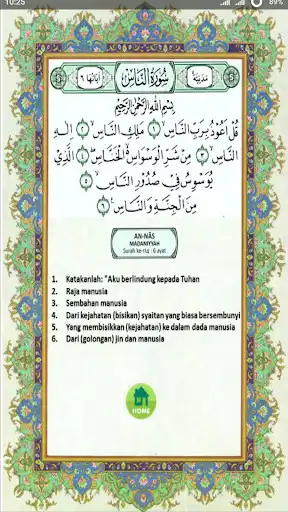 10:25
89%
مدنية
سورة الناس
آياتها ٦
بِسْمِ اللَّهِ الرَّحْمَٰنِ الرَّحِيمِ
قُلْ أَعُوذُ بِرَبِّ النَّاسِ ١ مَلِكِ النَّاسِ ٢ إِلَٰهِ
النَّاسِ ٣ مِنْ شَرِّ الْوَسْوَاسِ الْخَنَّاسِ ٤ الَّذِي
يُوَسْوِسُ فِي صُدُورِ النَّاسِ ٥
مِنَ الْجِنَّةِ وَالنَّاسِ ٦
AN-NĀS
MADANIYYAH
Surah ke-114 : 6 ayat
1. Katakanlah: "Aku berlindung kepada Tuhan
2. Raja manusia
3. Sembahan manusia
4. Dari kejahatan (bisikan) syaitan yang biasa bersembunyi
5. Yang membisikkan (kejahatan) ke dalam dada manusia
6. Dari (golongan) jin dan manusia
HOME